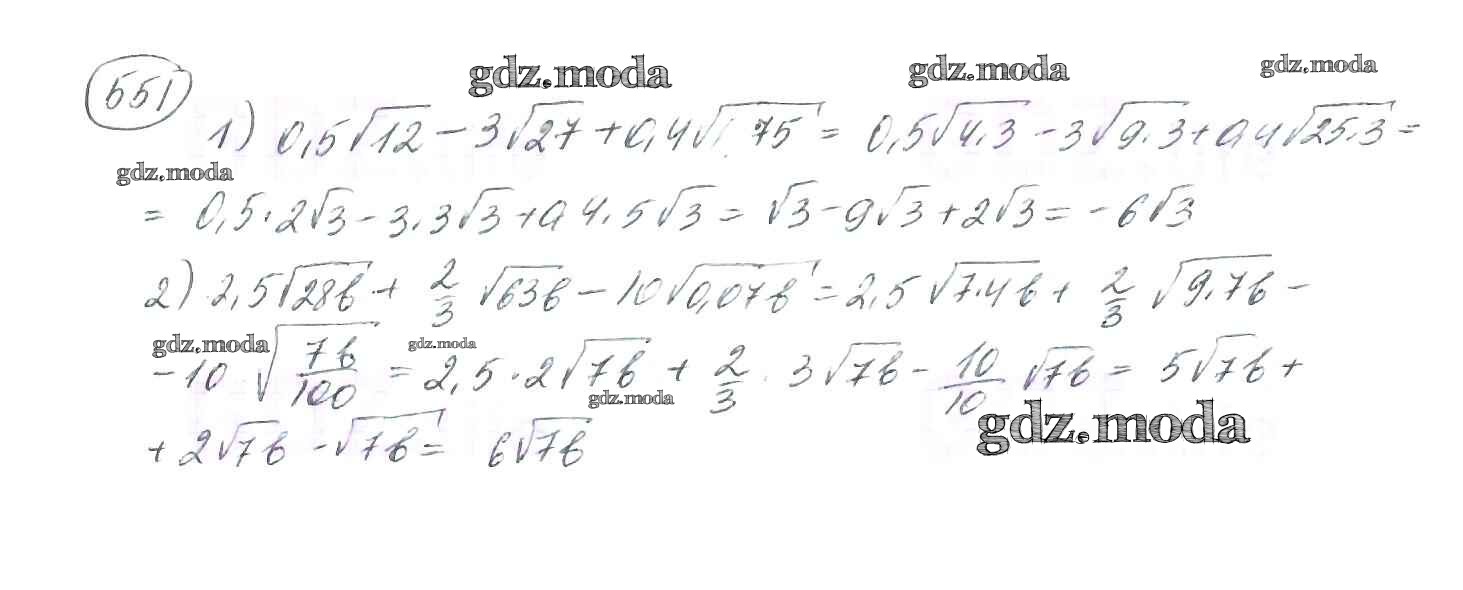 gdz.moda gdz.moda gdz.moda
551
1) 0,5√12 − 3√27 + 0,4√75 = 0,5√4·3 − 3√9·3 + 0,4√25·3 =
gdz.moda
= 0,5·2√3 − 3·3√3 + 0,4·5√3 = √3 − 9√3 + 2√3 = −6√3
2) 2,5√28b + 2/3 √63b − 10√0,07b = 2,5√7·4b + 2/3 √9·7b −
gdz.moda gdz.moda
−10 √7b/100 = 2,5·2√7b + 2/3 · 3√7b − 10/10 √7b = 5√7b +
gdz.moda gdz.moda
+ 2√7b − √7b = 6√7b